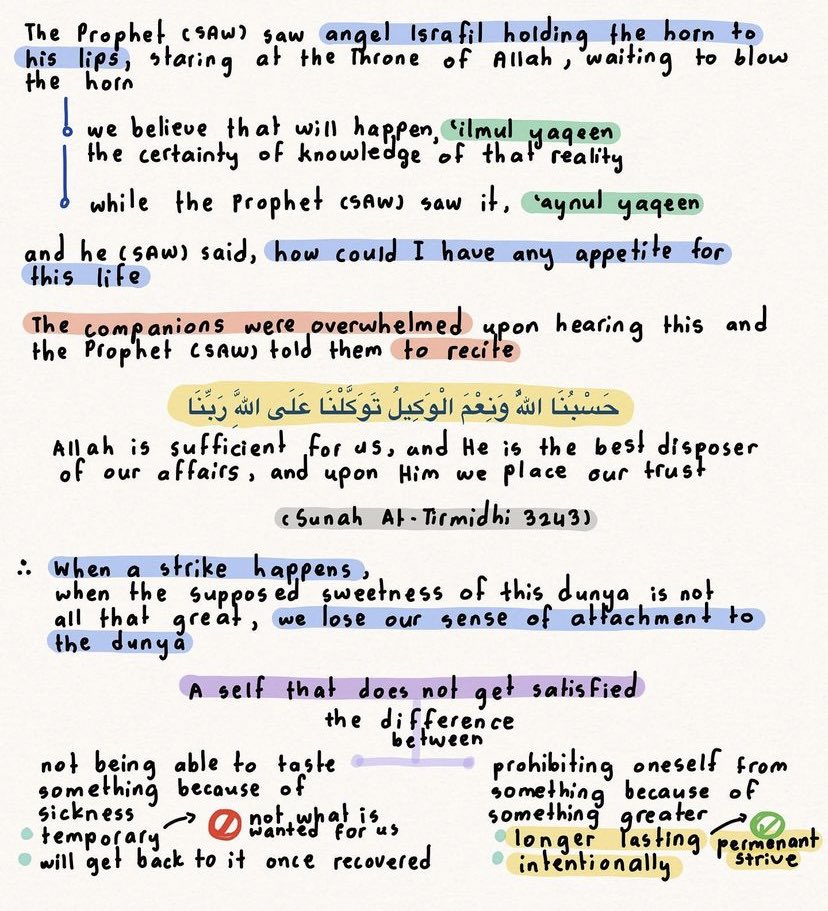 The Prophet (SAW) saw angel Israfil holding the horn to
his lips, staring at the Throne of Allah, waiting to blow
the horn
we believe that will happen, 'ilmul yaqeen
the certainty of knowledge of that reality
while the Prophet (SAW) saw it, 'aynul yaqeen
and he (SAW) said, how could I have any appetite for
this life
The companions were overwhelmed upon hearing this and
the Prophet (SAW) told them to recite
حَسْبُنَا اللهُ وَنِعْمَ الْوَكِيلُ تَوَكَّلْنَا عَلَى اللهِ رَبِّنَا
Allah is sufficient for us, and He is the best disposer
of our affairs, and upon Him we place our trust
(Sunah At-Tirmidhi 3243)
∴ When a strike happens,
when the supposed sweetness of this dunya is not
all that great, we lose our sense of attachment to
the dunya
A self that does not get satisfied
the difference
between
not being able to taste
something because of
sickness
• temporary → not what is
wanted for us
• will get back to it once recovered
prohibiting oneself from
something because of
something greater
• longer lasting → permanant
strive
• intentionally